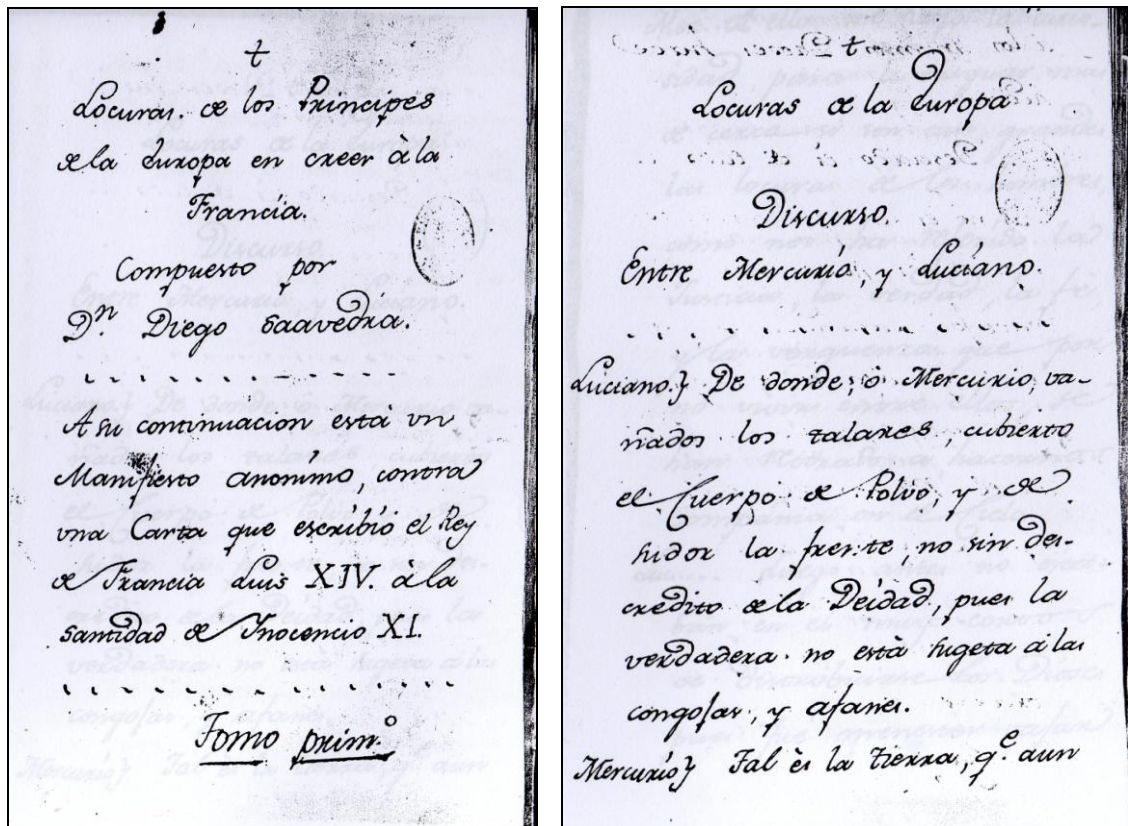 †
Locuras. de los Principes
de la Europa en creer à la
Francia.
Compuesto por
Dn. Diego Saavedra.
A su continuacion està vn
Manifiesto anonimo, contra
vna Carta que escribió el Rey
de Francia Luis XIV. à la
santidad de Inocencio XI.
Tomo prim.o
†
Locuras de la Europa
Discurso.
Entre Mercurio, y Luciano.
Luciano.} De donde, ò Mercurio, va-
ñados los talares, cubierto
el Cuerpo de Polvo, y de
sudor la frente, no sin des-
credito de la Deidad, pues la
verdadera no està sugeta á las
congojas, y afanes.
Mercurio} Tal es la Tierra, q.e aun